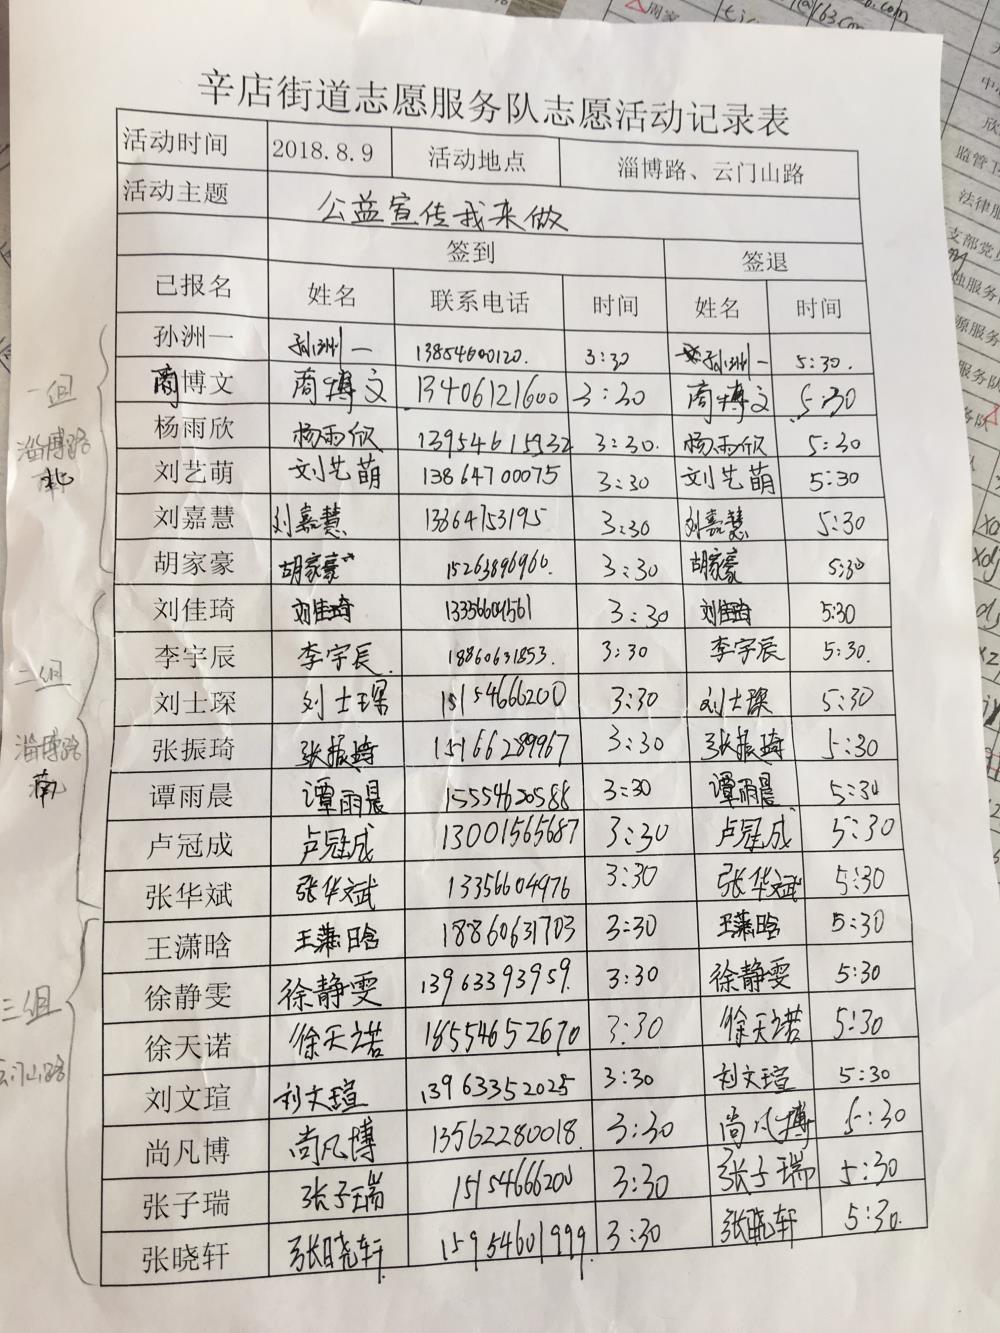 辛店街道志愿服务队志愿活动记录表
活动时间 2018.8.9 活动地点 淄博路、云门山路
活动主题 公益宣传我来做
签到 签退
已报名 姓名 联系电话 时间 姓名 时间
孙洲一 孙洲一 13854600120. 3:30 孙洲一 5:30.
商博文 商博文 13406121600 3:30 商博文 5:30
杨雨欣 杨雨欣 13954615932 3:30. 杨雨欣 5:30
刘艺萌 刘艺萌 13864700075 3:30 刘艺萌 5:30
刘嘉慧 刘嘉慧 13864753195 3:30 刘嘉慧 5:30
胡家豪 胡家豪 15263896960. 3:30 胡家豪 5:30
刘佳琦 刘佳琦 13356604561 3:30 刘佳琦 5:30
李宇辰 李宇辰. 18860631853. 3:30 李宇辰 5:30.
刘士琛 刘士琛 15154666200 3:30 刘士琛 5:30
张振琦 张振琦 15166289967 3:30 张振琦 5:30
谭雨晨 谭雨晨 15554620588 3:30 谭雨晨 5:30
卢冠成 卢冠成 13001565687 3:30 卢冠成 5:30
张华斌 张华斌 13356604976 3:30 张华斌 5:30
王潇晗 王潇晗 18860631703 3:30 王潇晗 5:30
徐静雯 徐静雯 13963393959. 3:30 徐静雯 5:30
徐天诺 徐天诺 18554652670 3:30 徐天诺 5:30
刘文瑄 刘文瑄 13963352025 3:30 刘文瑄 5:30
尚凡博 尚凡博 13562280018. 3:30 尚凡博 5:30
张子瑞 张子瑞 15154666200 3:30 张子瑞 5:30
张晓轩 张晓轩 15954601999 3:30 张晓轩 5:30.
一组
淄博路
北
二组
淄博路
南
三组
云门山路
周家
@163.com
监管
法律服
支部党员
服务
源服务
服务队